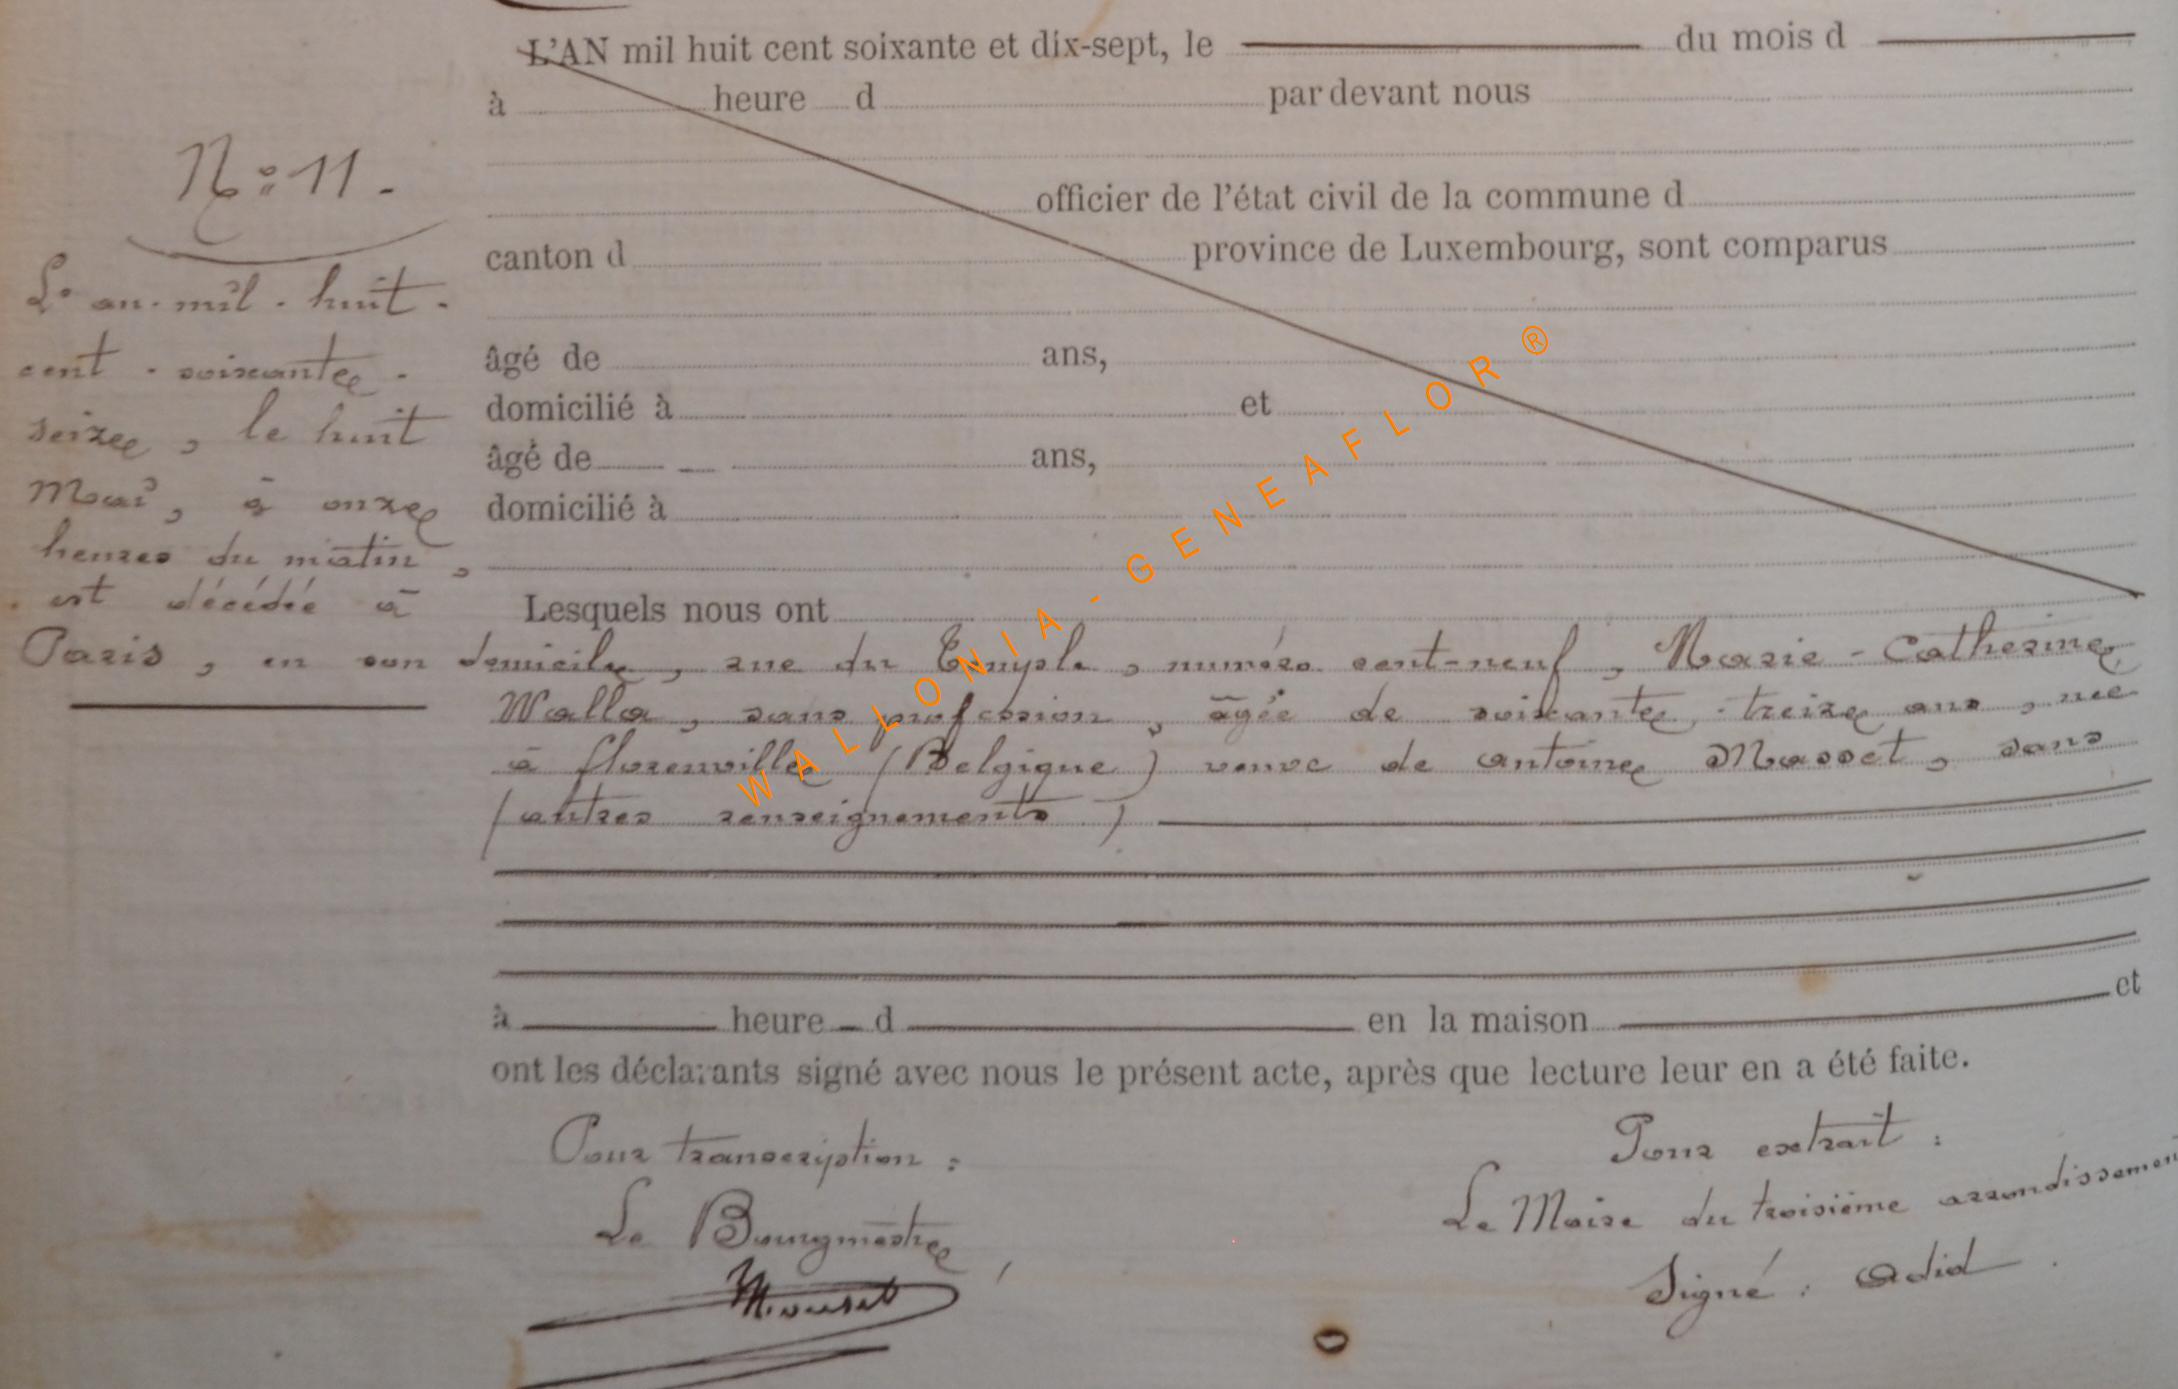 L'AN mil huit cent soixante et dix-sept, le du mois d
à heure d par devant nous
officier de l'état civil de la commune d
canton d province de Luxembourg, sont comparus
âgé de ans,
domicilié à et
âgé de ans,
domicilié à
Lesquels nous ont
N° 11.
L'an mil huit
cent soixante
seize, le huit
Mai, à onze
heures du matin,
est décédée à
Paris, en son domicile, rue du Temple, numéro cent-neuf, Marie-Catherine
Walla, sans profession, âgée de soixante-treize ans, née
à florenville (Belgique) veuve de antoine Masset, sans
(autres renseignements)
à heure d en la maison et
ont les déclarants signé avec nous le présent acte, après que lecture leur en a été faite.
Pour transcription :
Le Bourgmestre
Pour extrait :
Le Maire du troisième arrondissement
Signé : 
WALLONIA - GENEAFLOR ®